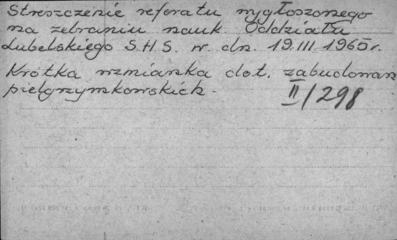 Streszczenie referatu wygłoszonego
na zebraniu nauk. Oddziału
Lubelskiego S.H.S. w dn. 19.III 1965 r.
Krótka wzmianka dot. zabudowań
pielgrzymkowskich.
II/298